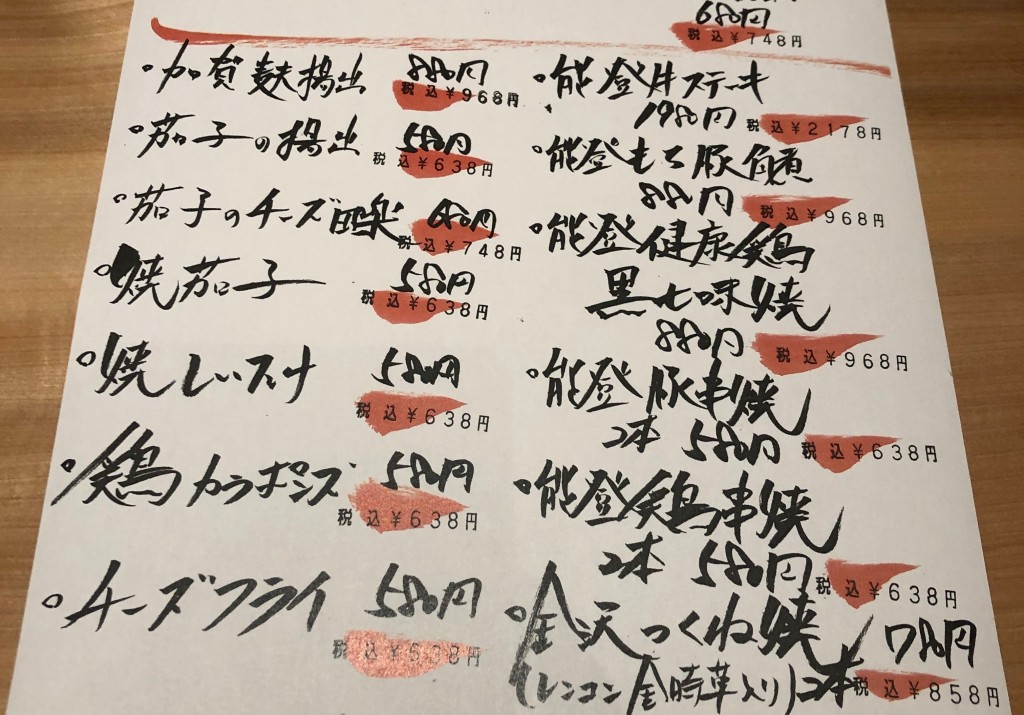 680円
税込¥748円
・加賀麩揚出 880円
税込¥968円
・茄子の揚出 580円
税込¥638円
・茄子のチーズ田楽 680円
税込¥748円
・焼茄子 580円
税込¥638円
・焼しいたけ 580円
税込¥638円
・鶏カラポンズ 580円
税込¥638円
・チーズフライ 580円
税込¥638円
・能登牛ステーキ
1980円 税込¥2178円
・能登もち豚角煮
880円 税込¥968円
・能登健康鶏
黒七味焼
880円 税込¥968円
・能登豚串焼
2本 580円 税込¥638円
・能登鶏串焼
2本 580円 税込¥638円
・金沢つくね焼 780円
(レンコン金時草入り)2本 税込¥858円